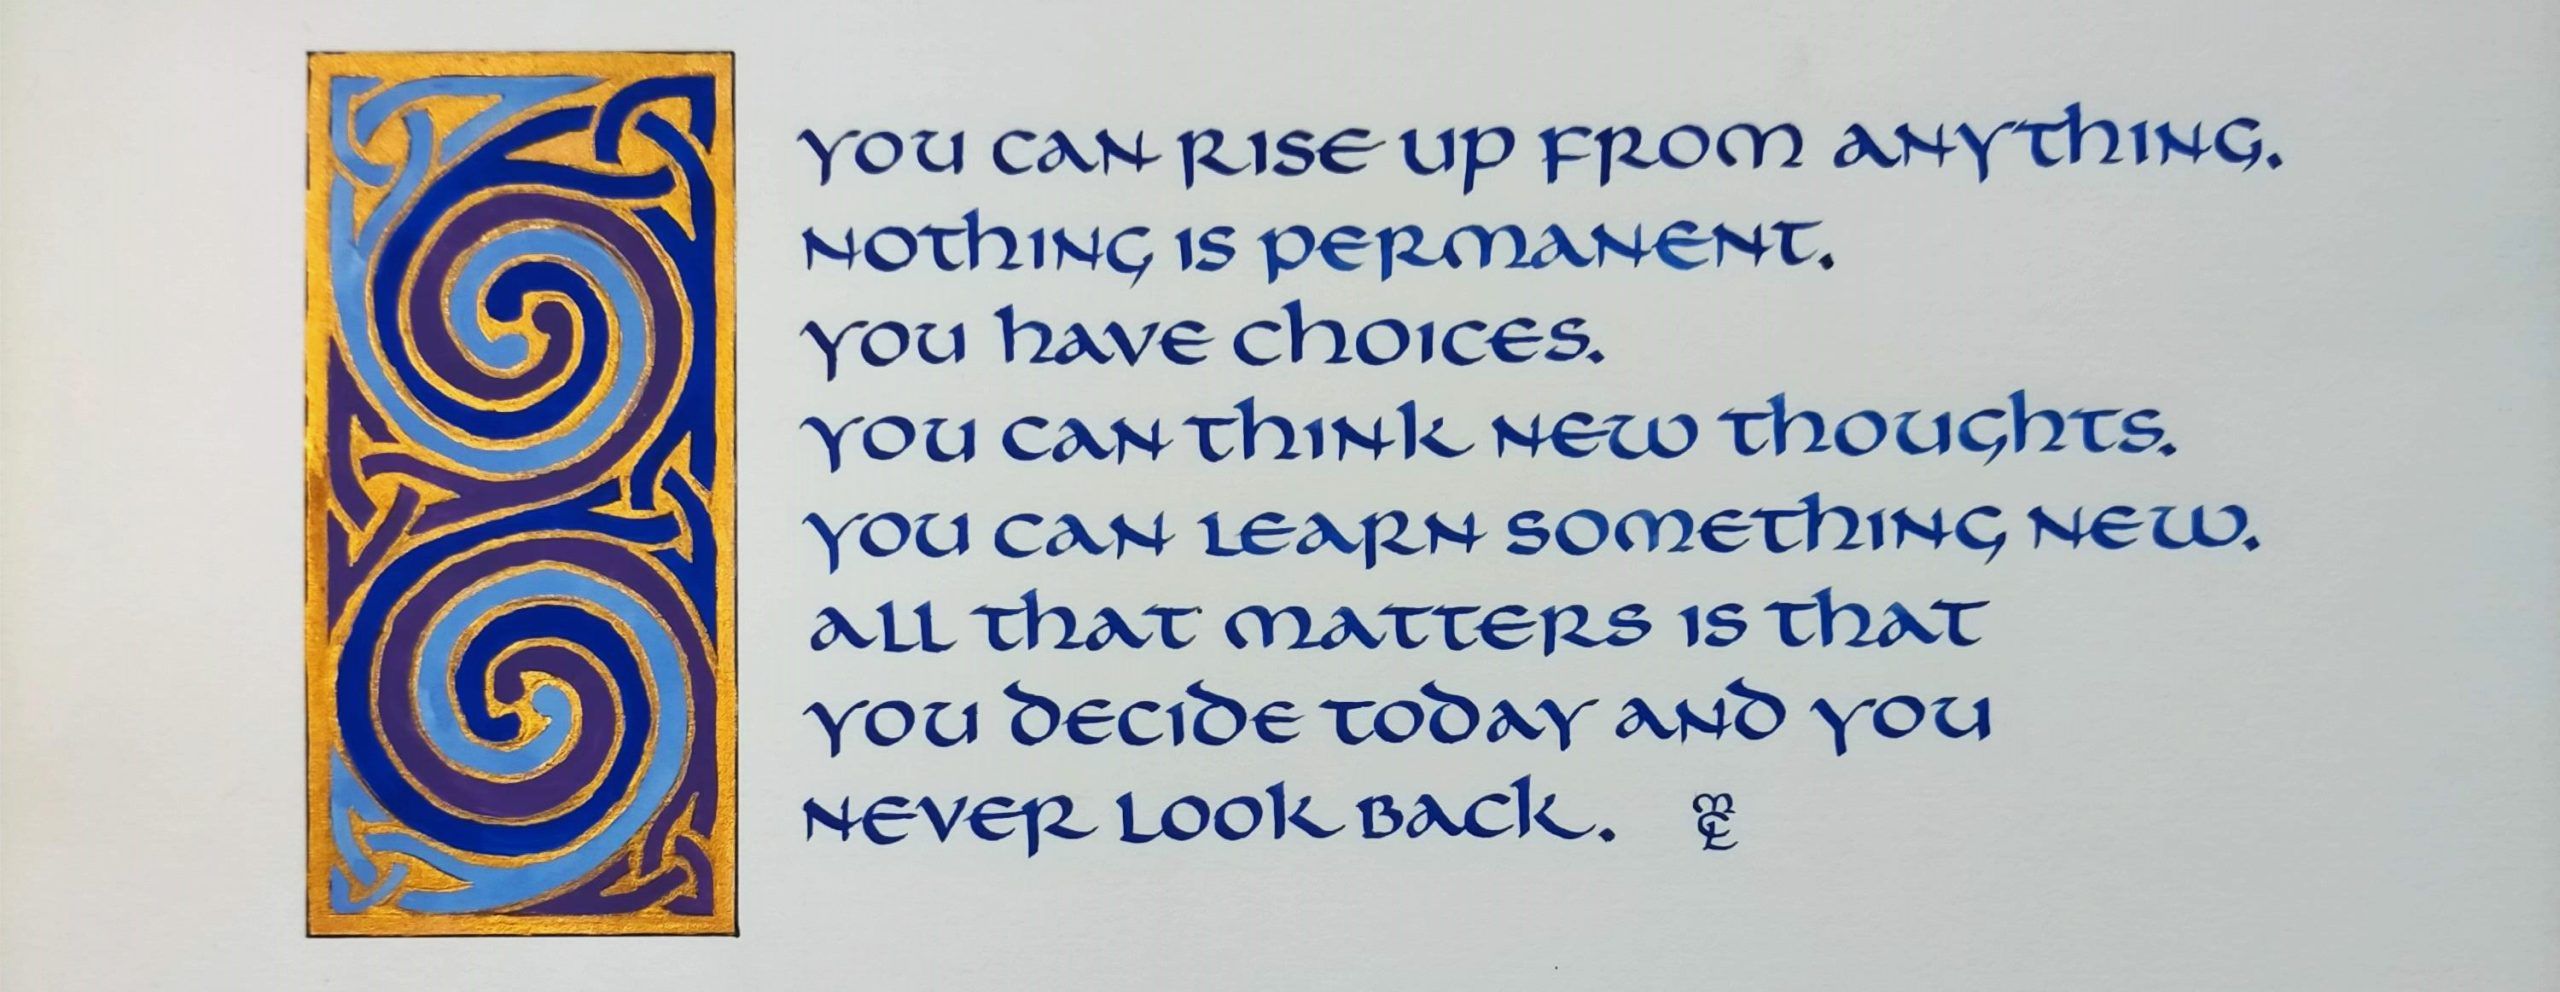 You can rise up from anything.
Nothing is permanent.
You have choices.
You can think new thoughts.
You can learn something new.
All that matters is that
you decide today and you
never look back.